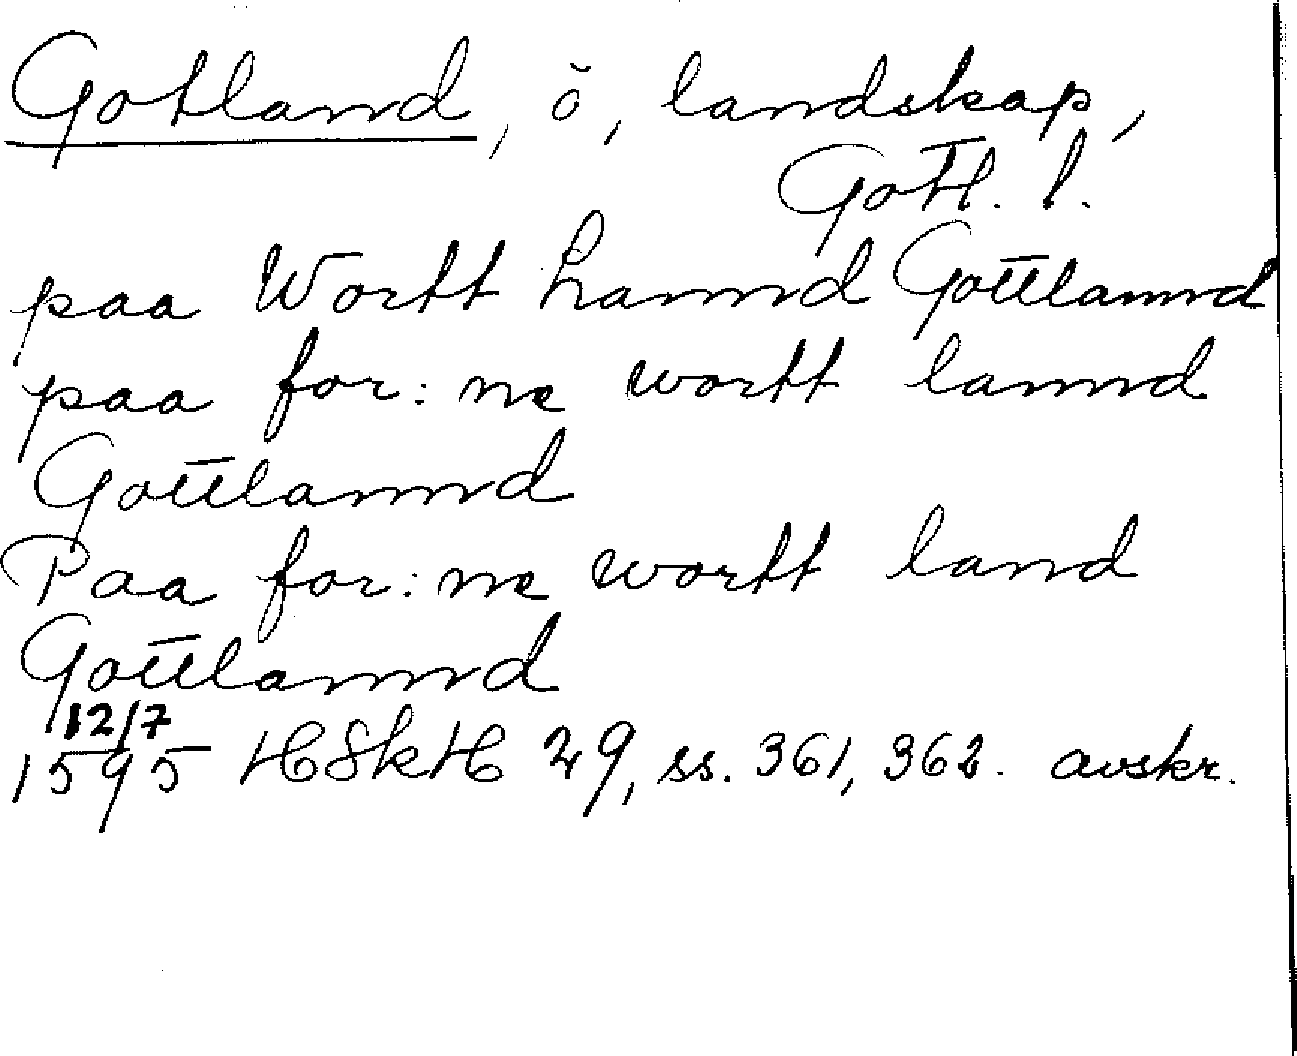 Gotland, ö, landskap,
Gotl. l.
paa Wortt Lannd Gottlannd
paa for:ne wortt lannd
Gottlannd
Paa for:ne wortt land
Gottlannd
12/7
1595 HSkH 29, ss. 361, 362. avskr.